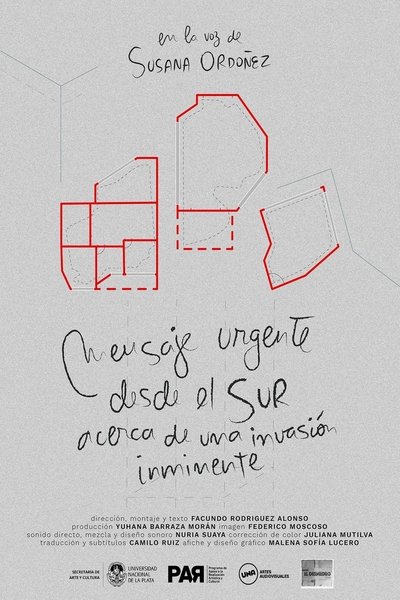 en la voz de
SUSANA ORDOÑEZ
mensaje urgente
desde el SUR
acerca de una invasión
inminente
dirección, montaje y texto FACUNDO RODRIGUEZ ALONSO
producción YUHANA BARRAZA MORÁN imagen FEDERICO MOSCOSO
sonido directo, mezcla y diseño sonoro NURIA SUAYA corrección de color JULIANA MUTILVA
traducción y subtítulos CAMILO RUIZ afiche y diseño gráfico MALENA SOFÍA LUCERO
SECRETARÍA DE
ARTE Y CULTURA
UNIVERSIDAD
NACIONAL
DE LA PLATA
PAR
Programa de
Apoyo a la
Realización
Artística y
Cultural
UNA
ARTES
AUDIOVISUALES